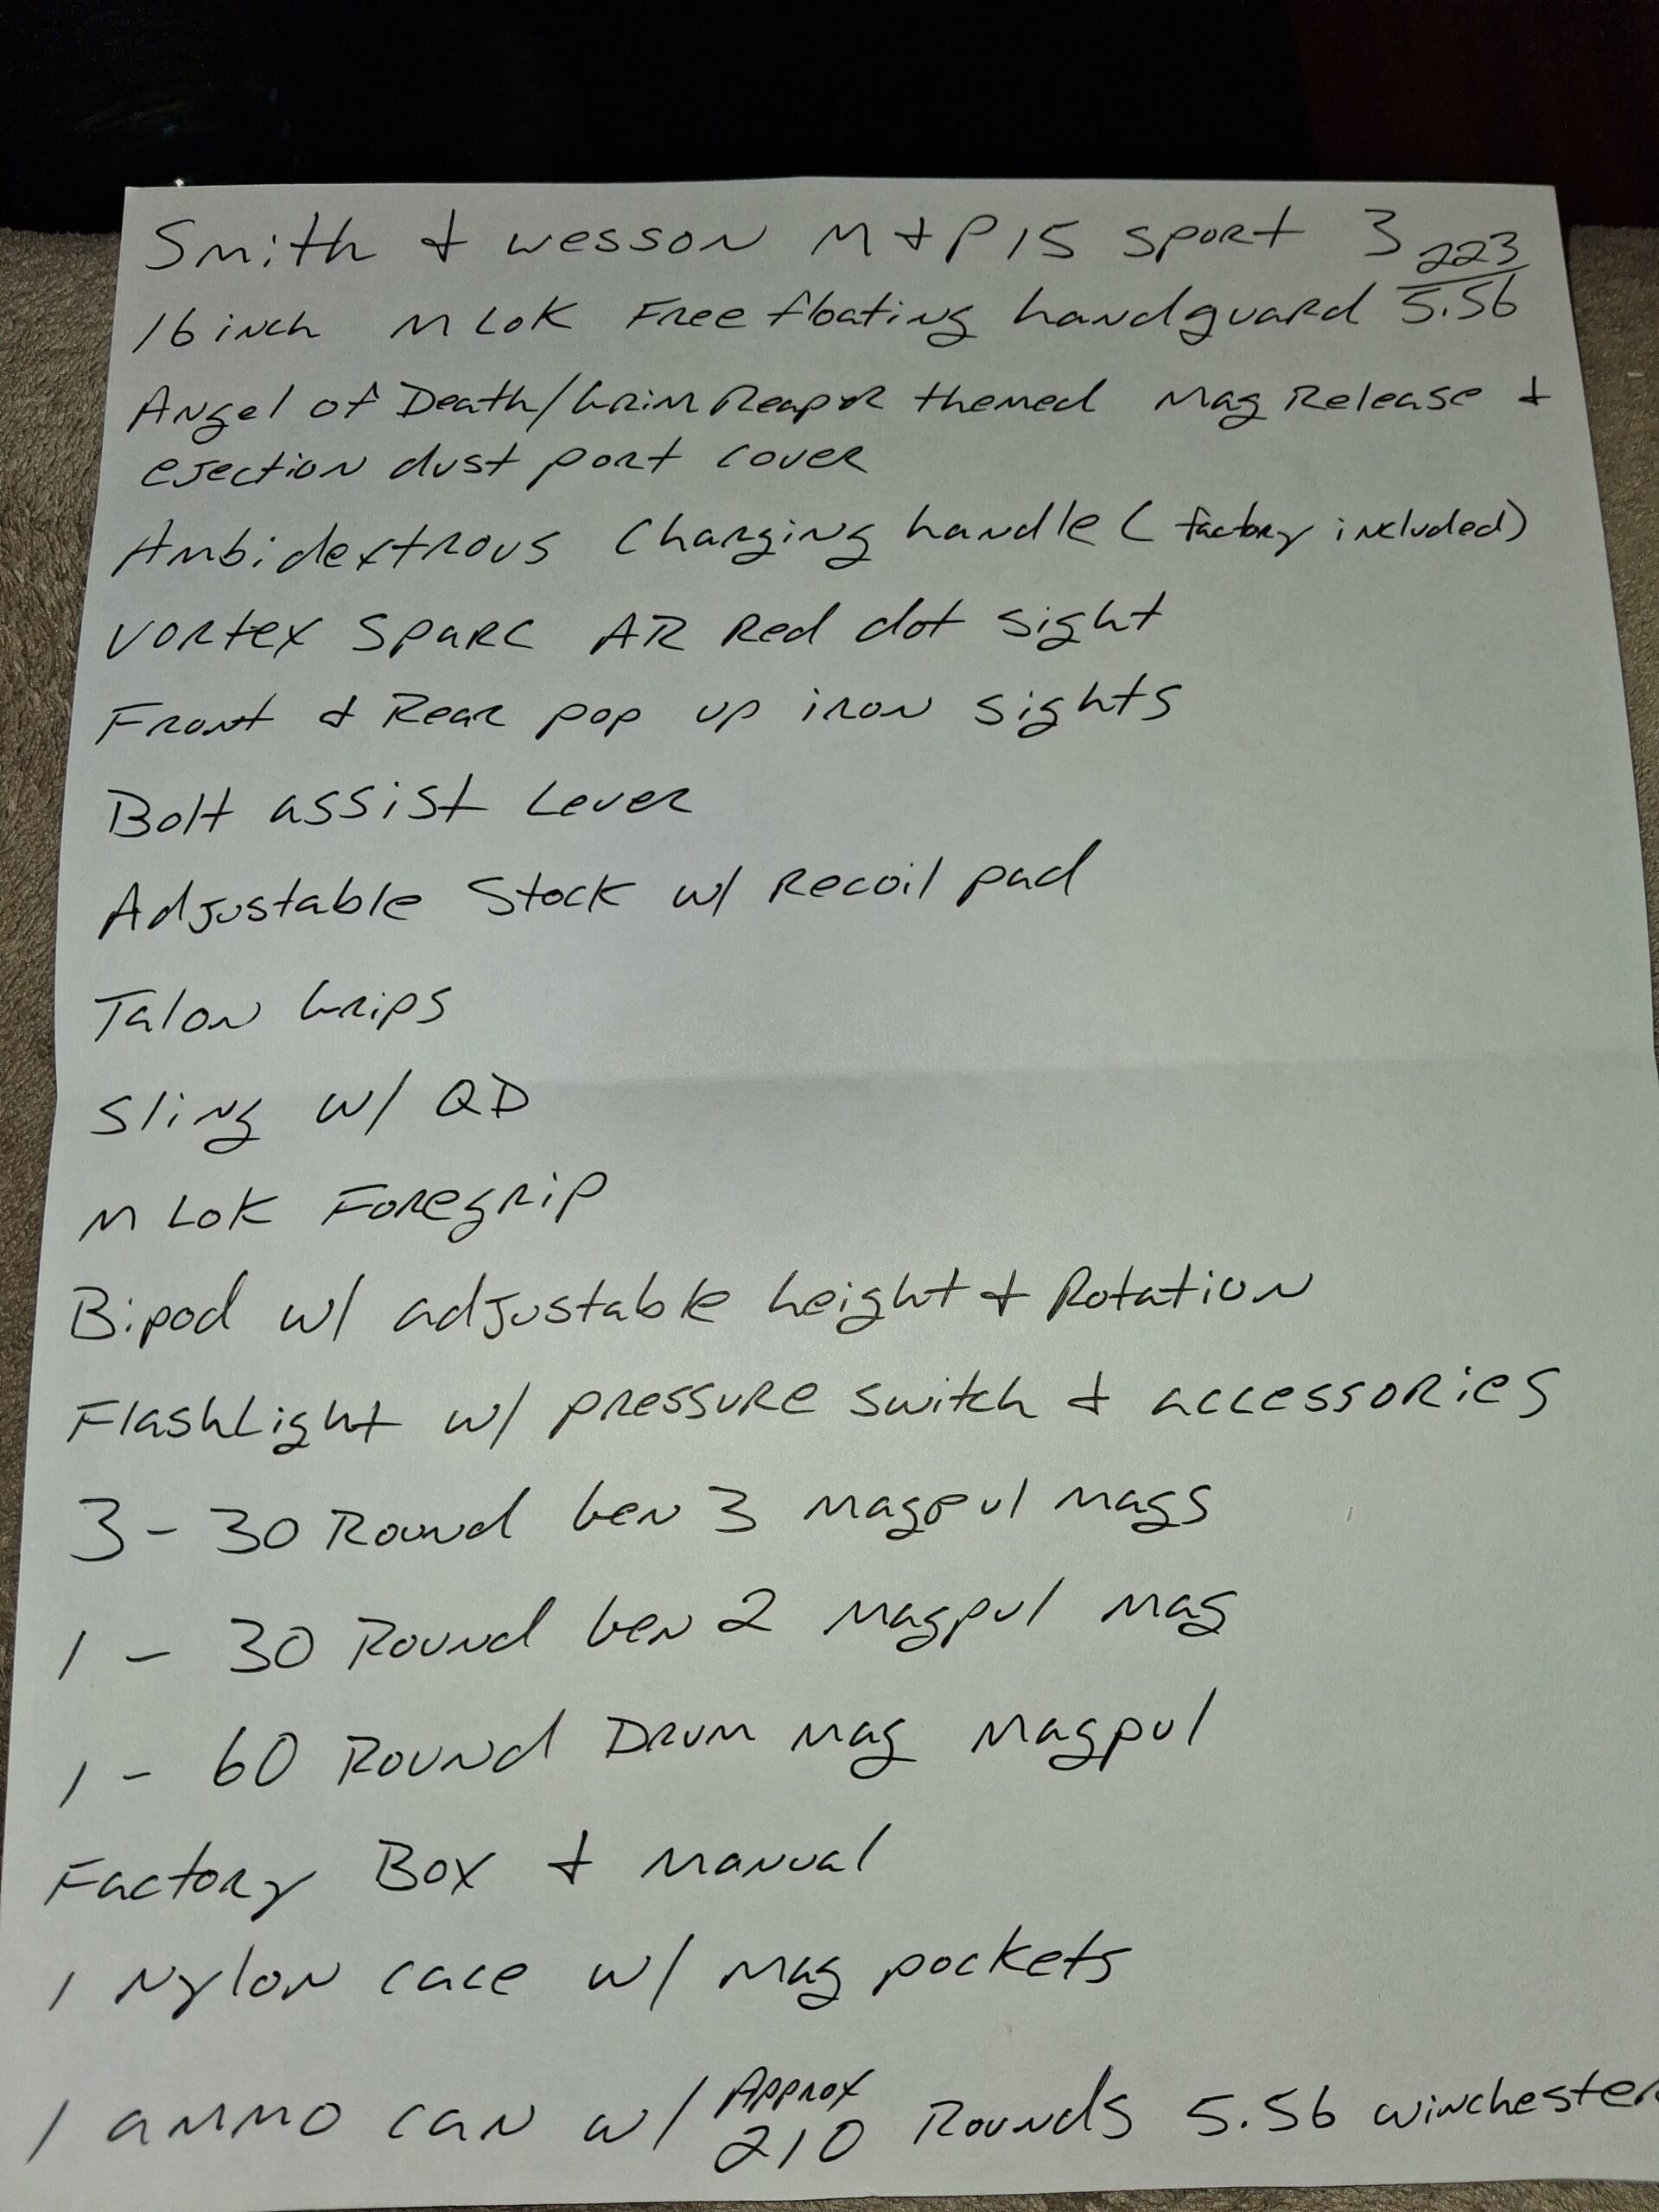 Smith & wesson M&P15 sport 3 223
16 inch MLOK Free floating handguard 5.56
Angel of Death/Grim Reaper themed Mag Release &
ejection dust port cover
Ambidextrous Charging handle (factory included)
Vortex Sparc AR Red dot sight
Front & Rear pop up iron sights
Bolt assist Lever
Adjustable Stock w/ Recoil pad
Talon Grips
Sling w/ QD
MLOK Foregrip
Bipod w/ adjustable height & Rotation
FlashLight w/ pressure switch & accessories
3 - 30 Round Gen 3 Magpul mags
1 - 30 Round Gen 2 Magpul Mag
1 - 60 Round Drum Mag Magpul
Factory Box & Manual
1 Nylon cace w/ Mag pockets
1 ammo can w/ Approx 210 Rounds 5.56 winchester